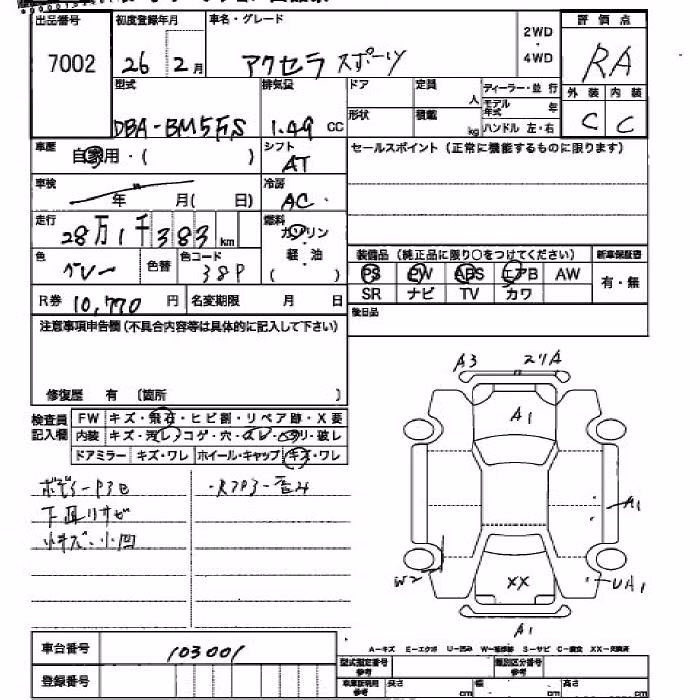 出品番号 初度登録年月 車名・グレード 評価点
7002 26年 2月 アクセラ スポーツ 2WD・4WD RA
型式 排気量 ドア 定員 人 ディーラー・並行 外装 内装
DBA-BM5FS 1.49 cc 形状 積載 kg モデル年式 年 ハンドル 左・右 C C
車歴 自家用・( ) シフト AT セールスポイント (正常に機能するものに限ります)
車検 年 月( 日) 冷房 AC
走行 28万1千383km 燃料 ガソリン・軽油 ( )
色 グレー 色替 色コード 38P 装備品 (純正品に限り○をつけてください) 新車保証書
PS PW ABS エアB AW 有・無
R券 10,770円 名変期限 月 日 SR ナビ TV カワ
注意事項申告欄 (不具合内容等は具体的に記入して下さい) 後日品
修復歴 有 〔箇所 〕
検査員記入欄 FW キズ・飛石・ヒビ割・リペア跡・X要
内装 キズ・汚レ・コゲ・穴・スレ・ソリ・破レ
ドアミラー キズ・ワレ ホイール・キャップ キズ・ワレ
下廻りサビ
小キズ・小凹
A3
A1
A1
W2
XX
UA1
A1
車台番号 103001
登録番号
A-キズ E-エクボ U-凹み W-補修跡 S-サビ C-腐食 XX-交換済
型式指定番号 参考 類別区分番号 参考
車庫証明用 参考 長さ cm 幅 cm 高さ cm